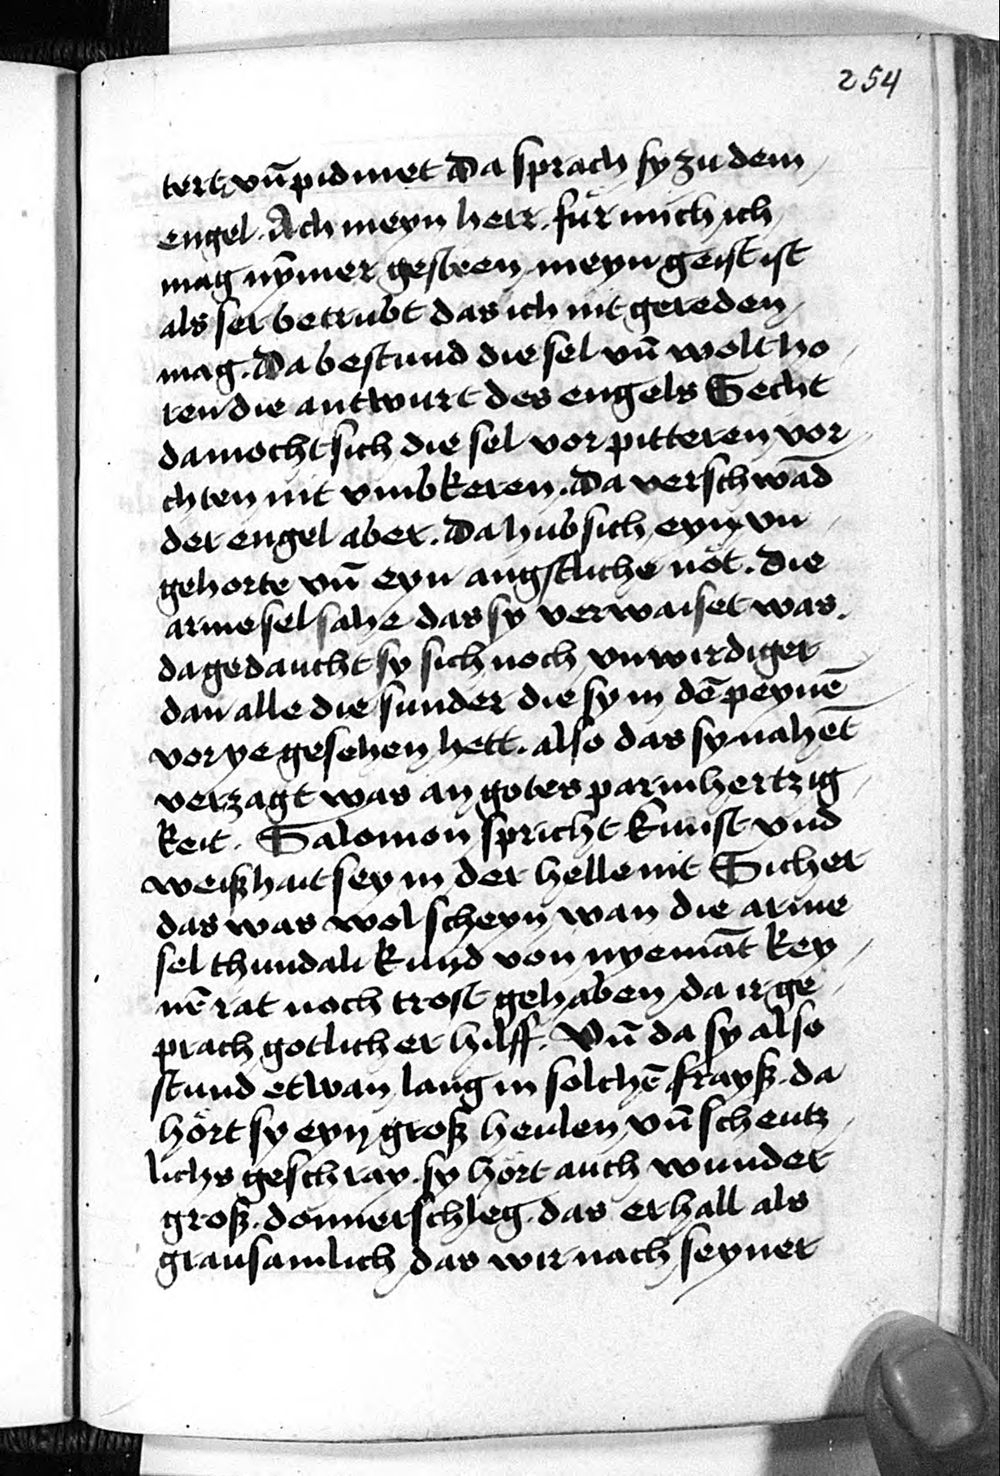 254
tert vn̄ pidmet Da sprach sy zu dem
engel. Ach meyn herr. für mich ich
mag nym̄er gesteen meyn geist ist
als ser betrubt das ich nit gereden
mag. Da bestund die sel vn̄ wolt ho
ren die antwurt des engels Secht
da mocht sich die sel vor pitteren vor
chten nit vmbkeren. Da verschwād
der engel aber. Da hub sich eyn vn
gehorte vn̄ eyn angstliche nöt. die
arme sel sahe das sy verwaiset was.
da gedaucht sy sich noch vnwirdiger
dan alle die sunder die sy in dē peynē
vor ye gesehen hett. also das sy nahēt
verzagt was an gotes parmhertzig
keit. Salomon spricht kunst vnd
weißhait sey in der helle nit Sicher
das was wol scheyn wan die arme
sel thundali kund von nyemāt key
nē rat noch trost gehaben da ir ge
prach gotlicher hilff. Vn̄ da sy also
stund etwan lang in solchē frayß. da
hört sy eyn groß heulen vn̄ scheutz
lichs geschray. sy hört auch wunder
groß. donnerschleg. das erhall als
grausamlich das wir nach seyner